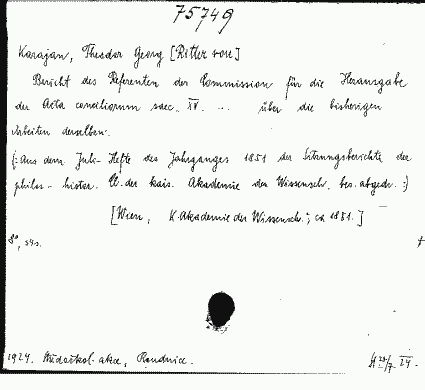 75749
Karajan, Theodor Georg [Ritter von]
Bericht des Referenten der Commission für die Herausgabe
der Acta conciliorum saec. XV. ... über die bisherigen
Arbeiten derselben.
(: Aus dem Juli-Hefte des Jahrganges 1851 der Sitzungsberichte der
philos.-histor. Cl. der kais. Akademie der Wissensch. bes. abgedr. :)
[Wien, K. Akademie der Wissensch.; ca 1851.]
8°,
1924. Roudnice.